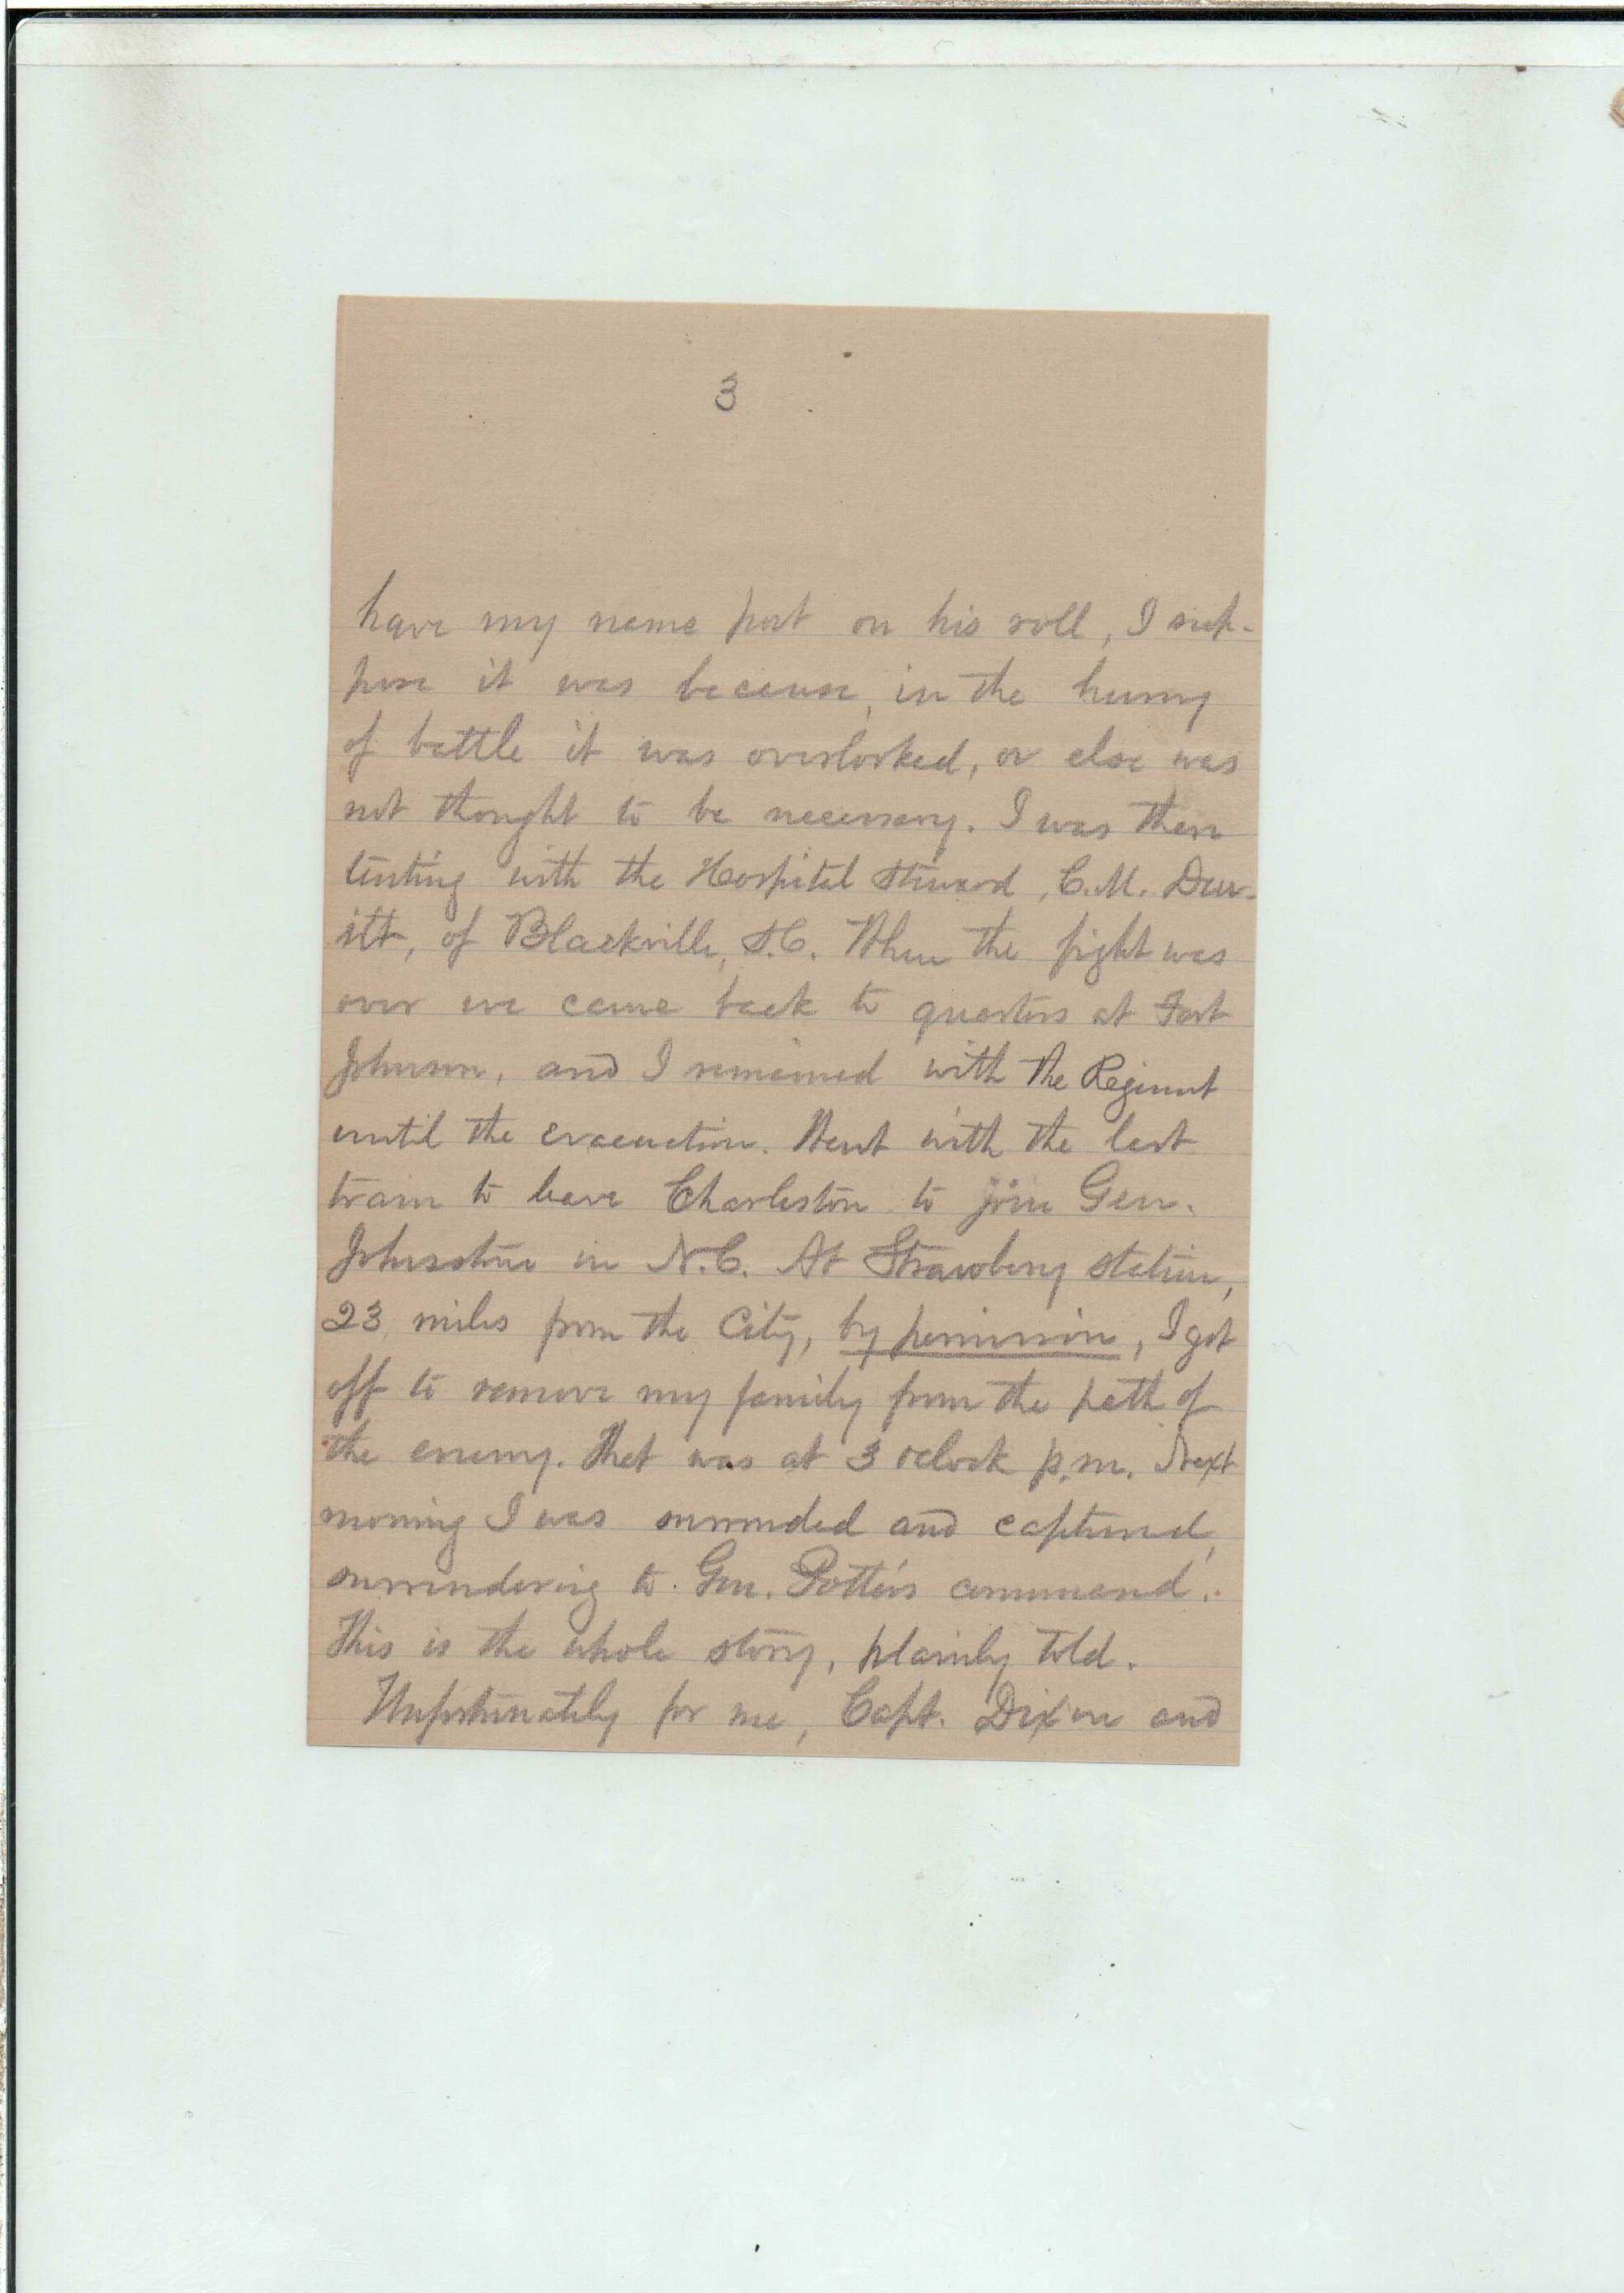 3
have my name put on his roll, I sup-
pose it was because, in the hurry
of battle it was overlooked, or else was
not thought to be necessary. I was then
tenting with the Hospital Steward, C.M. Dew-
itt, of Blackville, S.C. When the fight was
over we came back to quarters at Fort
Johnson, and I remained with the Regiment
until the evacuation. Went with the last
train to leave Charleston to join Gen.
Johnston in N.C. At Strawberry station,
23 miles from the City, by permission, I got
off to remove my family from the path of
the enemy. That was at 3 oclock p.m. Next
morning I was surrounded and captured,
surrendering to Gen. Potter's command.
This is the whole story, plainly told.
Unfortunately for me, Capt. Dixon and